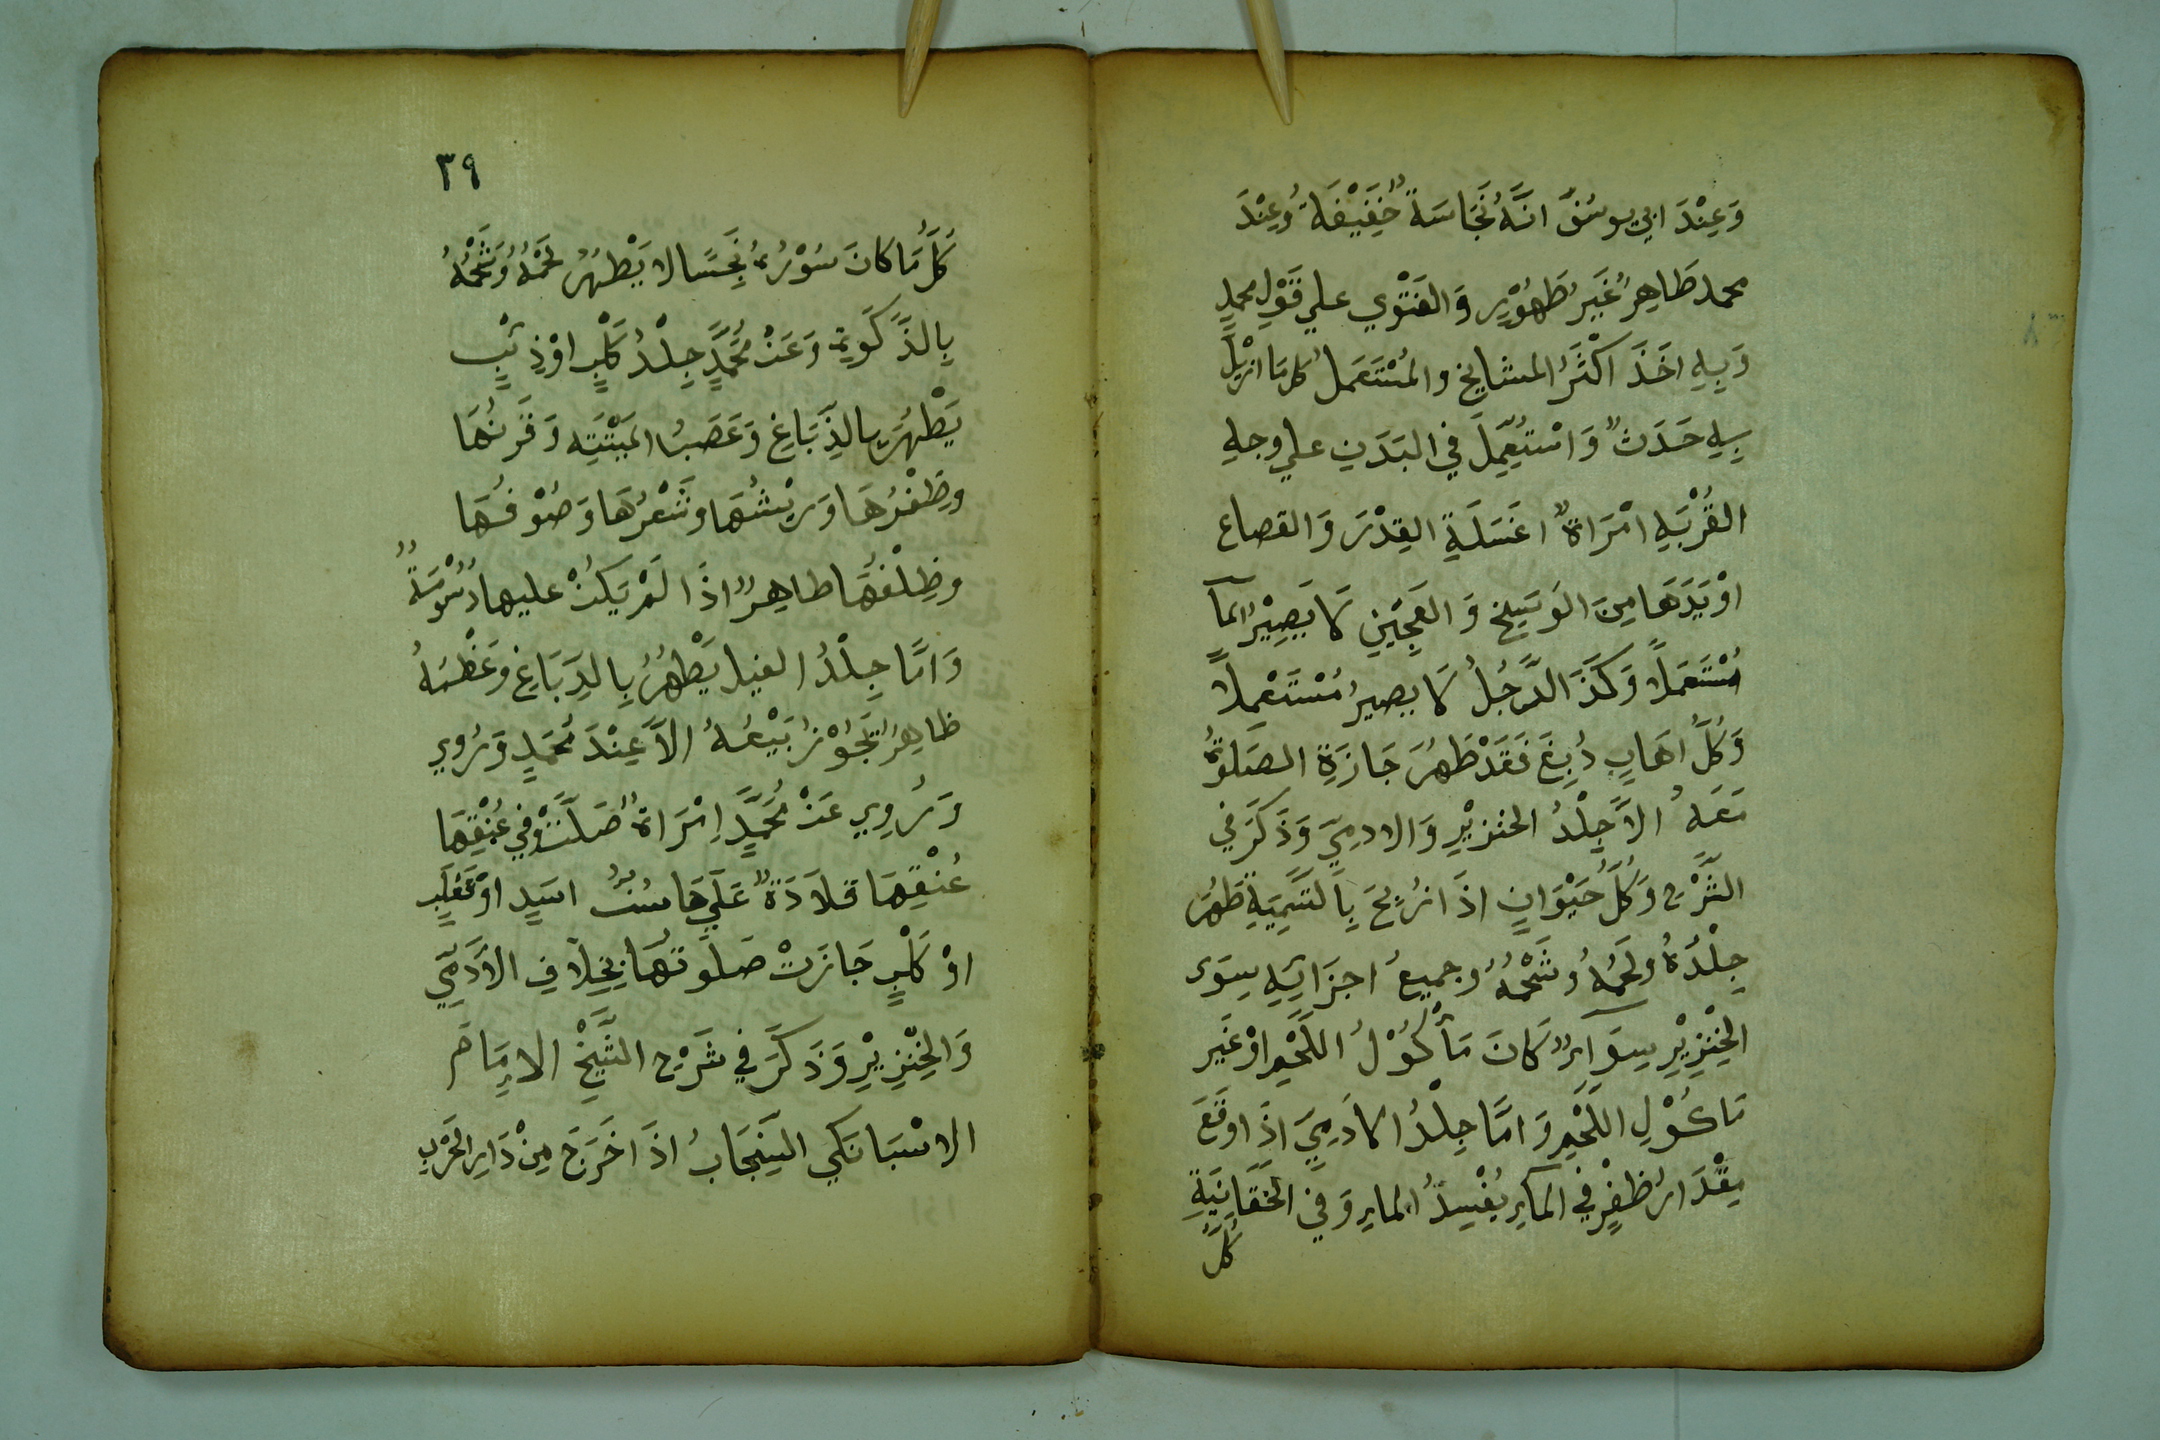 وَعِنْدَ ابي يوسُفَ انَّهُ نَجَاسَةٌ خَفِيْفَةٌ وَعِنْدَ
محمد طَاهِرٌ غَيْرُ طَهُوْرٍ وَالفَتْوٰي علي قَوْلِ محمدٍ
وَبِهِ اخَذَ اكْثَرُ المشايخ والمُسْتَعمَلُ كُلُ مَا ازِيْلَ
بِهِ حَدَثٌ وَاسْتُعْمِلَ في البَدَنِ علي وجهِ
القُرْبَهِ امْرَاةٌ اغَسَلَةِ القِدْرَ وَالقصاع
اوْ يَدَهَا مِنَ الوَسَخِ وَالعَجِيْنِ لَا يَصِيْرُ المآ
مُسْتَعمَلًا وَكَذَ الرَّجُلُ لَا يصيرُ مُسْتَعْمِلًا
وَكُلُّ اهَابٍ دُبِغَ فَقَدْ طَهُرَ جَازَةِ الصَلَوةُ
مَعَهُ الاَّ جِلْدُ الخنزِيْرِ وَالادمِيِّ وَذَكَرَ في
الشَّرْحِ وَكُلُّ حَيْوَانٍ اذَا زُبِحَ بِالتَسْمِيَةِ طَهُرَ
جِلْدُهُ ولَحْمُهُ وشَحْمُهُ وجميعُ اجزَايِهِ سِوَى
الخِنْزِيْرِ سِوَآءٌ كَانَ مَأْكُوْلُ اللَّحْمِ اوْ غَيْرِ
مَاكُوْلِ اللَحْمِ وَامَّا جِلْدُ الادَمِيِّ اذَا وقَعَ
مِقْدَارُ ظفْرٍ في المَآءِ يُفْسِدُ الماءِ وَفي الخَقَانِيَةِ
كُلُّ
٣٩
كُلُّ مَا كانَ سُوْرُهُ نَجِسًا لا يَطْهُرُ لحْمُهُ وَشَحْمُهُ
بِالذَّكَوةِ وَعَنْ مُحَمَّدٍ جِلْدُ كَلْبٍ اوْ ذِئْبٍ
يَطْهُرُ بِالدِّبَاغِ وَعَصَبُ المَيْتَتِهِ وَقَرنُهَا
وظِفْرُهَا وَرِيْشُهَا وشَعْرُهَا وَصُوْفُهَا
وظِلْفُهَا طاهِرٌ اذَا لَمْ يَكُنْ عليها دُسُوْمَةٌ
وَامَّا جِلْدُ الفيل يَطْهُرُ بِالدِبَاغِ وعَظْمُهُ
ظاهِرٌ يَجُوْزُ بَيْعُهُ الاَّ عِنْدَ مُحَمَدٍ وَرُوِي
وَرُوِي عَنْ مُحَمَّدٍ اِمْرَاةٌ صَلَّتْ وفي عُنُقِهَا
عُنْقِهَا قَلَادَةٌ عَلَيْهَا سُنُّ اسَدٍ اوْ ثَعْلَبٍ
اوْ كَلْبٍ جَازَتْ صَلَوتُهَا بِخِلَافِ الاَدَمِيِّ
وَالخِنْزِيْرِ وَذَكَرَ في شَرْحِ الشَّيْخْ الاِمَامَ
الاسْبَانَكي السِنْجَابُ اذَا خَرَجَ مِنْ دَارِ الحَرْبِ